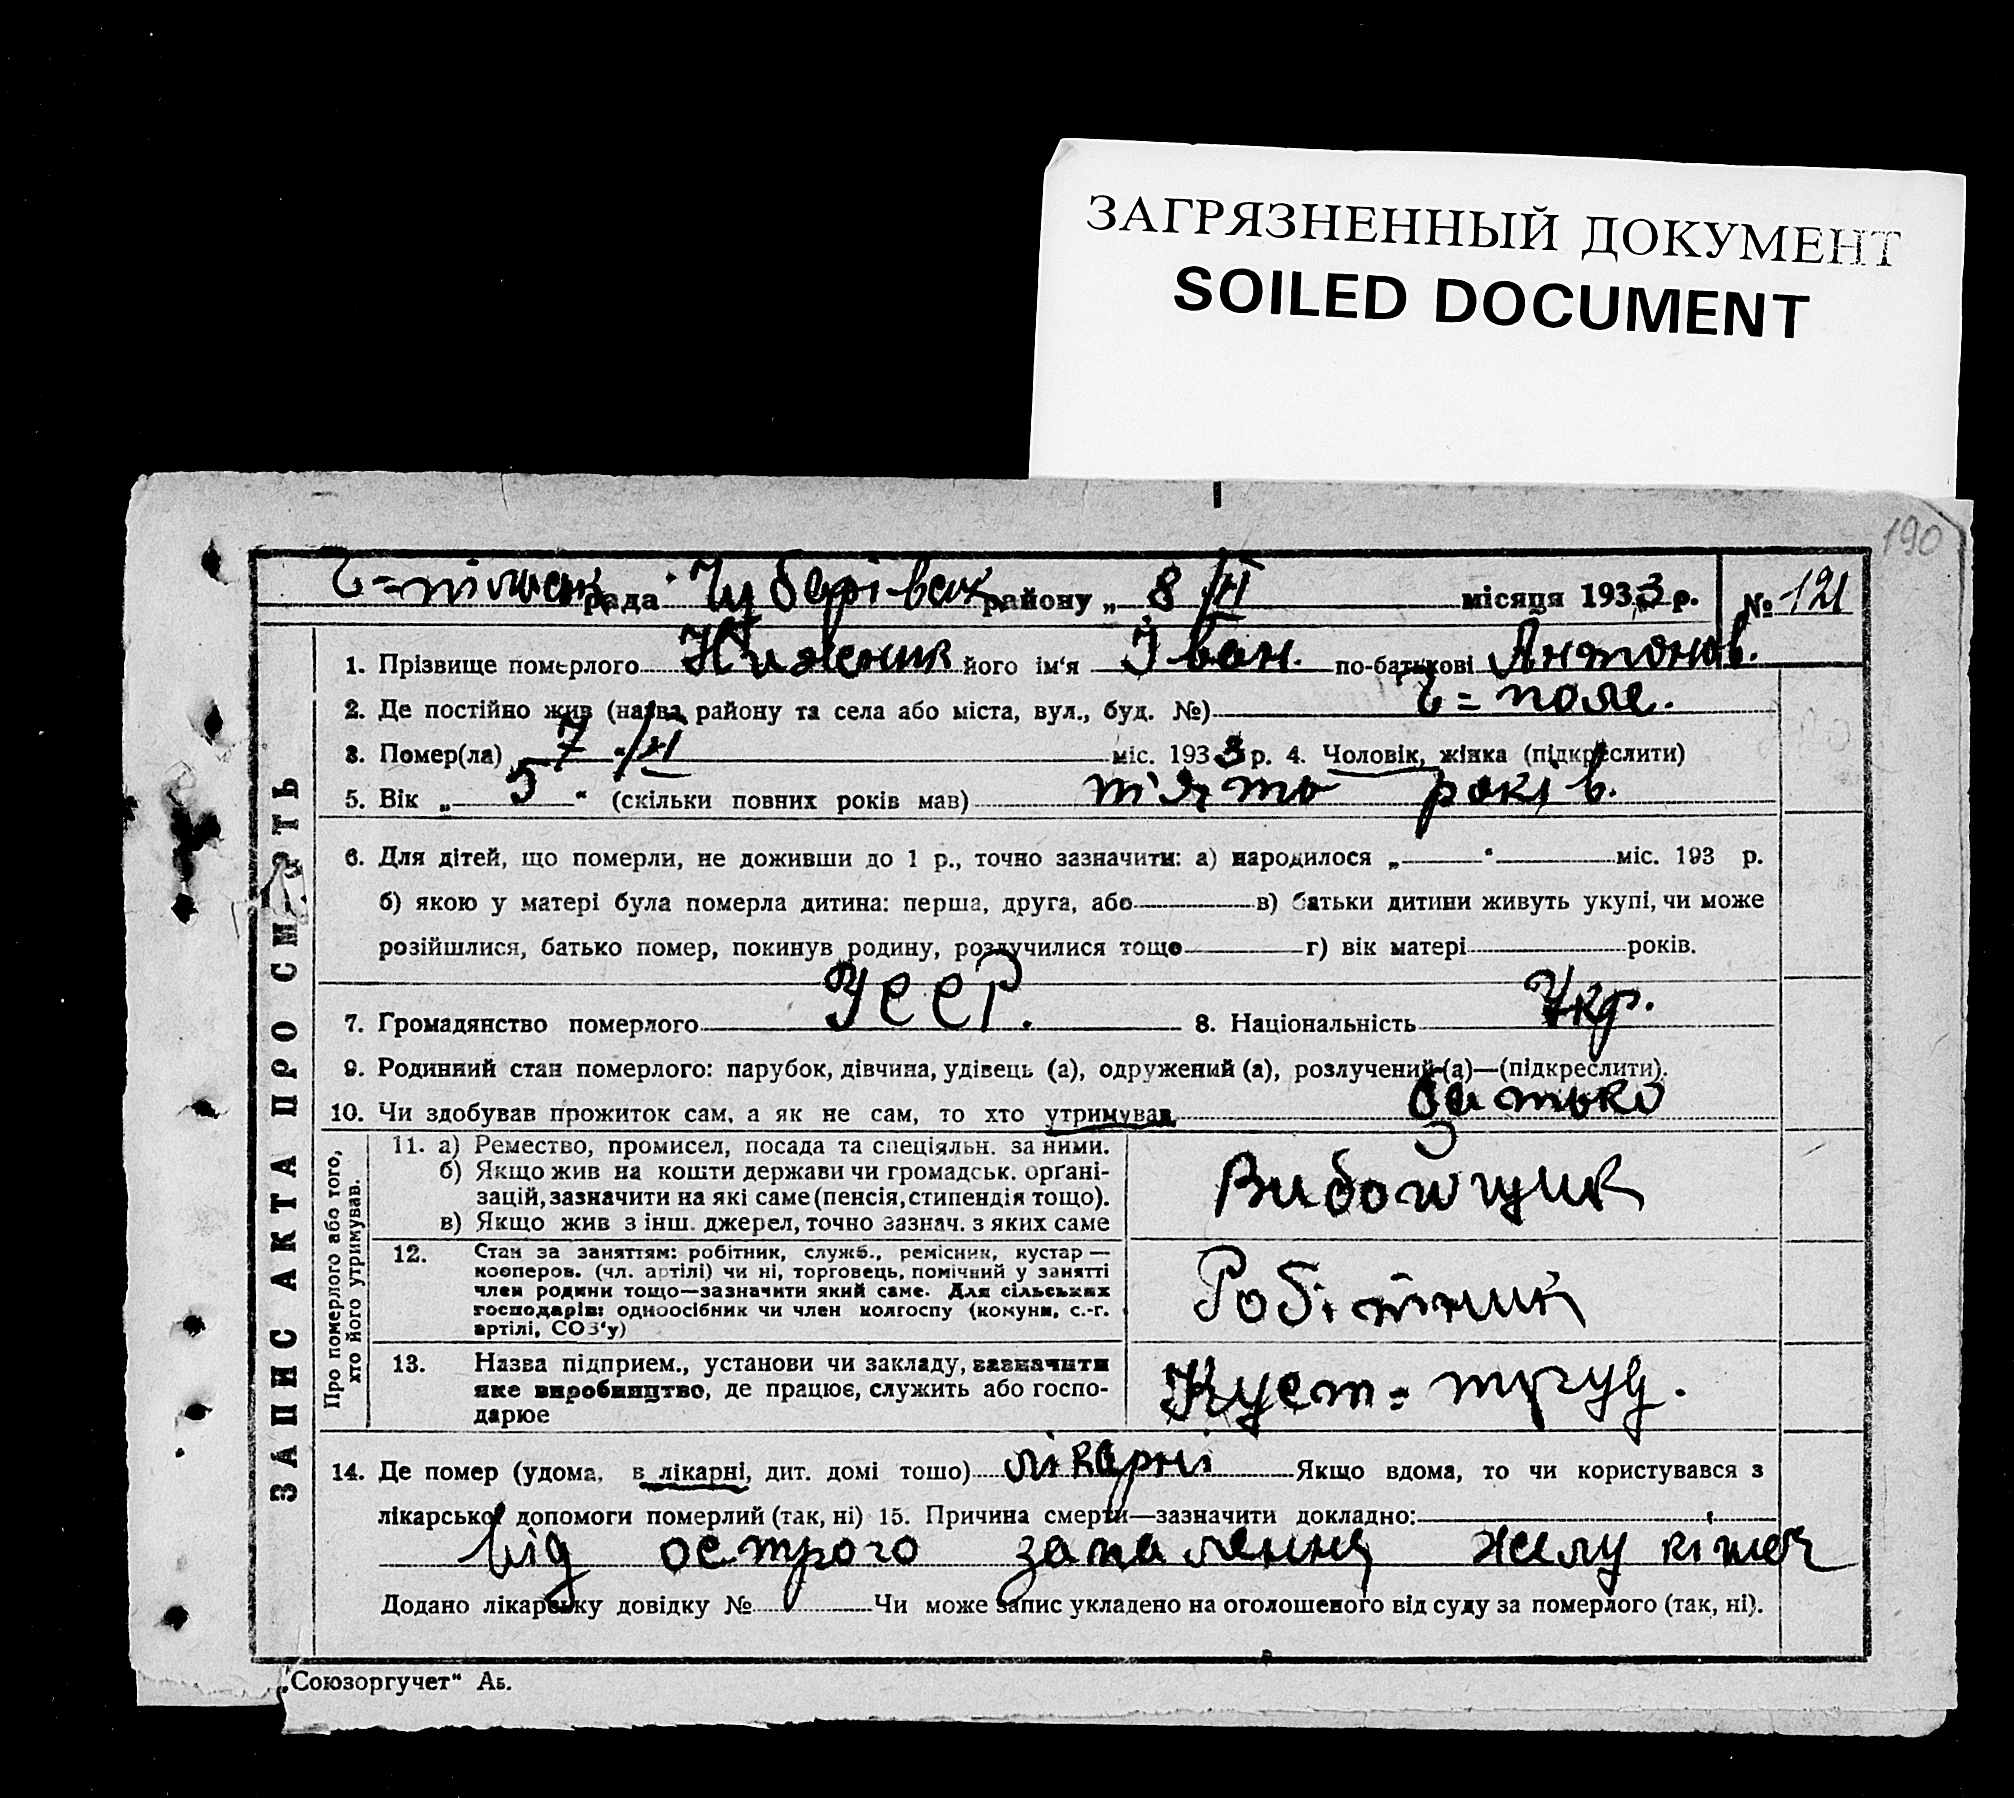 ЗАГРЯЗНЕННЫЙ ДОКУМЕНТ
SOILED DOCUMENT
190
Г=пільськ рада Чубарівськ району „ 8/III місяця 1933 р. № 121
ЗАПИС АКТА ПРО СМЕРТЬ
1. Прізвище померлого Нижник його ім'я Іван. по-батькові Антонов.
2. Де постійно жив (назва району та села або міста, вул., буд. №) Г=поле.
3. Помер(ла) 7/III міс. 1933 р. 4. Чоловік, жінка (підкреслити)
5. Вік „ 5 “ (скільки повних років мав) п'ять років.
6. Для дітей, що померли, не доживши до 1 р., точно зазначити: а) народилося „ “ міс. 193 р.
б) якою у матері була померла дитина: перша, друга, або в) батьки дитини живуть укупі, чи може
розійшлися, батько помер, покинув родину, розлучилися тощо г) вік матері років.
7. Громадянство померлого УССР. 8. Національність Укр.
9. Родинний стан померлого: парубок, дівчина, удівець (а), одружений (а), розлучений (а)—(підкреслити).
10. Чи здобував прожиток сам, а як не сам, то хто утримував батько
Про померлого або того,
хто його утримував.
11. а) Ремество, промисел, посада та спеціяльн. за ними.
б) Якщо жив на кошти держави чи громадськ. орґані-
зацій, зазначити на які саме (пенсія, стипендія тощо).
в) Якщо жив з інш. джерел, точно зазнач. з яких саме
Вибойщик
12. Стан за заняттям: робітник, служб., ремісник, кустар —
кооперов. (чл. артілі) чи ні, торговець, помічний у занятті
член родини тощо—зазначити який саме. Для сільських
господарів: одноосібник чи член колгоспу (комуни, с.-г.
артілі, СОЗ'у)
Робітник
13. Назва підприєм., установи чи закладу, зазначити
яке виробництво, де працює, служить або госпо-
дарює
Куст=труд.
14. Де помер (удома, в лікарні, дит. домі тошо) лікарні Якщо вдома, то чи користувався з
лікарської допомоги померлий (так, ні) 15. Причина смерти—зазначити докладно:
від острого запалення желу кішок
Додано лікарську довідку № Чи може запис укладено на оголошеного від суду за померлого (так, ні).
„Союзоргучет“ Аь.